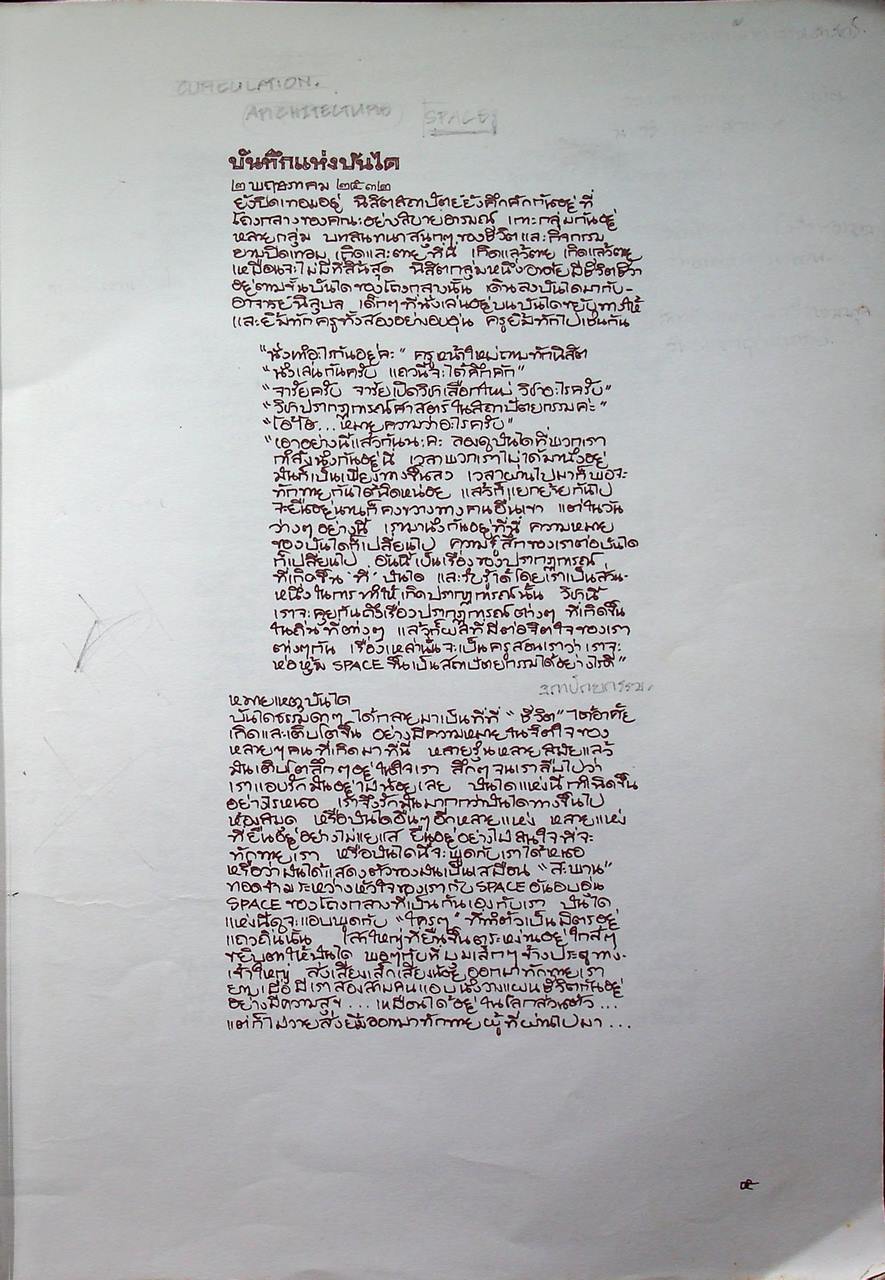 CIRCULATION.
ARCHITECTURE SPACE
บันทึกแห่งบันได
๒ พฤษภาคม ๒๕๓๒
ยังปิดเทอมอยู่ นิสิตสถาปัตย์ยังคึกคักกันอยู่ ที่
โถงกลางของคณะอย่างสบายอารมณ์ เกาะกลุ่มกันอยู่
หลายกลุ่ม บทสนทนาสนุกๆ ของชีวิตและกิจกรรม
ยามปิดเทอม เกิดและตายที่นี่ เกิดแล้วตาย เกิดแล้วตาย
เหมือนจะไม่มีที่สิ้นสุด นิสิตกลุ่มหนึ่งอาศัยมีชีวิตชีวา
อยู่ตามขั้นบันไดของโถงกลางนั้น เดินลงบันไดมากับ-
อาจารย์นิลุบล เด็กๆที่นั่งเล่นอยู่บนบันไดขยับทางให้
และยิ้มทักครูทั้งสองอย่างอบอุ่น ครูยิ้มทักไปเช่นกัน
"นั่งทำอะไรกันอยู่คะ" ครูหน้าใหม่ถามทักนิสิต
"นั่งเล่นกันครับ แถวนี้จะได้คึกคัก"
"จารย์ครับ จารย์เปิดวิชาเลือกใหม่ วิชาอะไรครับ"
"วิชาปรากฏการณ์ศาสตร์ในสถาปัตยกรรมค่ะ"
"โอ้โฮ...หมายความว่าอะไรครับ"
"เอาอย่างนี้แล้วกันนะคะ ลองดูบันไดที่พวกเรา
กำลังนั่งกันอยู่นี่ เวลาพวกเราไม่ได้มานั่งอยู่
มันก็เป็นเพียงทางขึ้นลง เวลาผ่านไปมาก็พอจะ
ทักทายกันได้นิดหน่อย แล้วก็แยกย้ายกันไป
จะยืนอยู่นานก็คงขวางทางคนอื่นเขา แต่ในวัน
ว่างๆอย่างนี้ เรามานั่งกันอยู่ที่นี่ ความหมาย
ของบันไดก็เปลี่ยนไป ความรู้สึกของเราต่อบันได
ก็เปลี่ยนไป อันนี้เป็นเรื่องของปรากฏการณ์
ที่เกิดขึ้น 'ที่' บันได และรับรู้ได้โดยเราเป็นส่วน-
หนึ่งในการทำให้เกิดปรากฏการณ์นั้น วิชานี้
เราจะคุยกันถึงเรื่องปรากฏการณ์ต่างๆ ที่เกิดขึ้น
ในถิ่นที่ต่างๆ แล้วก็ผลที่มีต่อจิตใจของเรา
ต่างๆกัน เรื่องเหล่านั้นจะเป็นครูสอนเราว่า เราจะ
ห่อหุ้ม SPACE ขึ้นเป็นสถาปัตยกรรมได้อย่างไรดี"
สถาปัตยกรรม.
หมายเหตุบันได
บันไดธรรมดาๆ ได้กลายมาเป็นที่ที่ "ชีวิต" ได้อาศัย
เกิดและเติบโตขึ้น อย่างมีความหมายในจิตใจของ
หลายๆคนที่เกิดมาที่นี่ หลายรุ่นหลายสมัยแล้ว
มันเติบโตลึกๆอยู่ในใจเรา ลึกๆจนเราลืมไปว่า
เราแอบรักมันอยู่ไม่น้อยเลย บันไดแห่งนี้กำเนิดขึ้น
อย่างไรหนอ เราจึงรักมันมากกว่าบันไดทางขึ้นไป
ห้องสมุด หรือบันไดอื่นๆอีกหลายแห่ง หลายแห่ง
ที่ยืนอยู่อย่างไม่แยแส ยืนอยู่อย่างไม่สนใจที่จะ
ทักทายเรา หรือบันไดนี้จะพูดกับเราได้หนอ
หรือว่ามันได้แสดงตัวของมันเป็นเสมือน "สะพาน"
ทอดข้ามระหว่างหัวใจของเรากับ SPACE อันอบอุ่น
SPACE ของโถงกลางที่เป็นกันเองกับเรา บันได
แห่งนี้ดูจะแอบพูดกับ "ใครๆ" ที่ทำตัวเป็นมิตรอยู่
แถวถิ่นนั้น เสาใหญ่ที่ยืนขึ้นตระหง่านอยู่ใกล้ๆ
ขยิบตาให้บันได พอๆกับที่มุมเล็กๆข้างประตูทาง-
เข้าใหญ่ ส่งเสียงเล็กเสียงน้อยออกมาทักทายเรา
ยามเมื่อมีเราสองสามคนแอบนั่งวางแผนชีวิตกันอยู่
อย่างมีความสุข...เหมือนได้อยู่ในโลกส่วนตัว...
แต่ก็ไม่วายส่งยิ้มออกมาทักทายผู้ที่ผ่านไปมา...